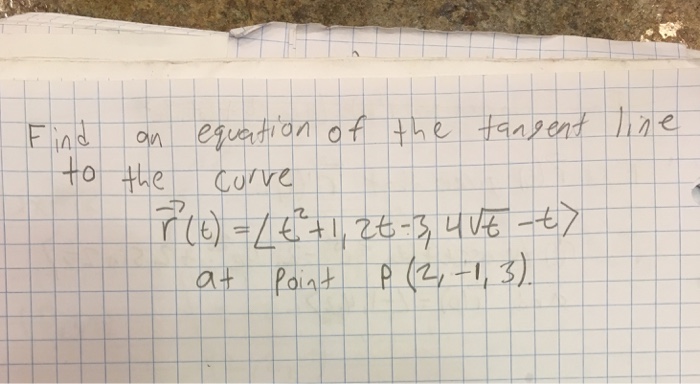 Find an equation of the tangent line
to the curve
r⃗(t) = ⟨t²+1, 2t-3, 4√t - t⟩
at point P(2, -1, 3).